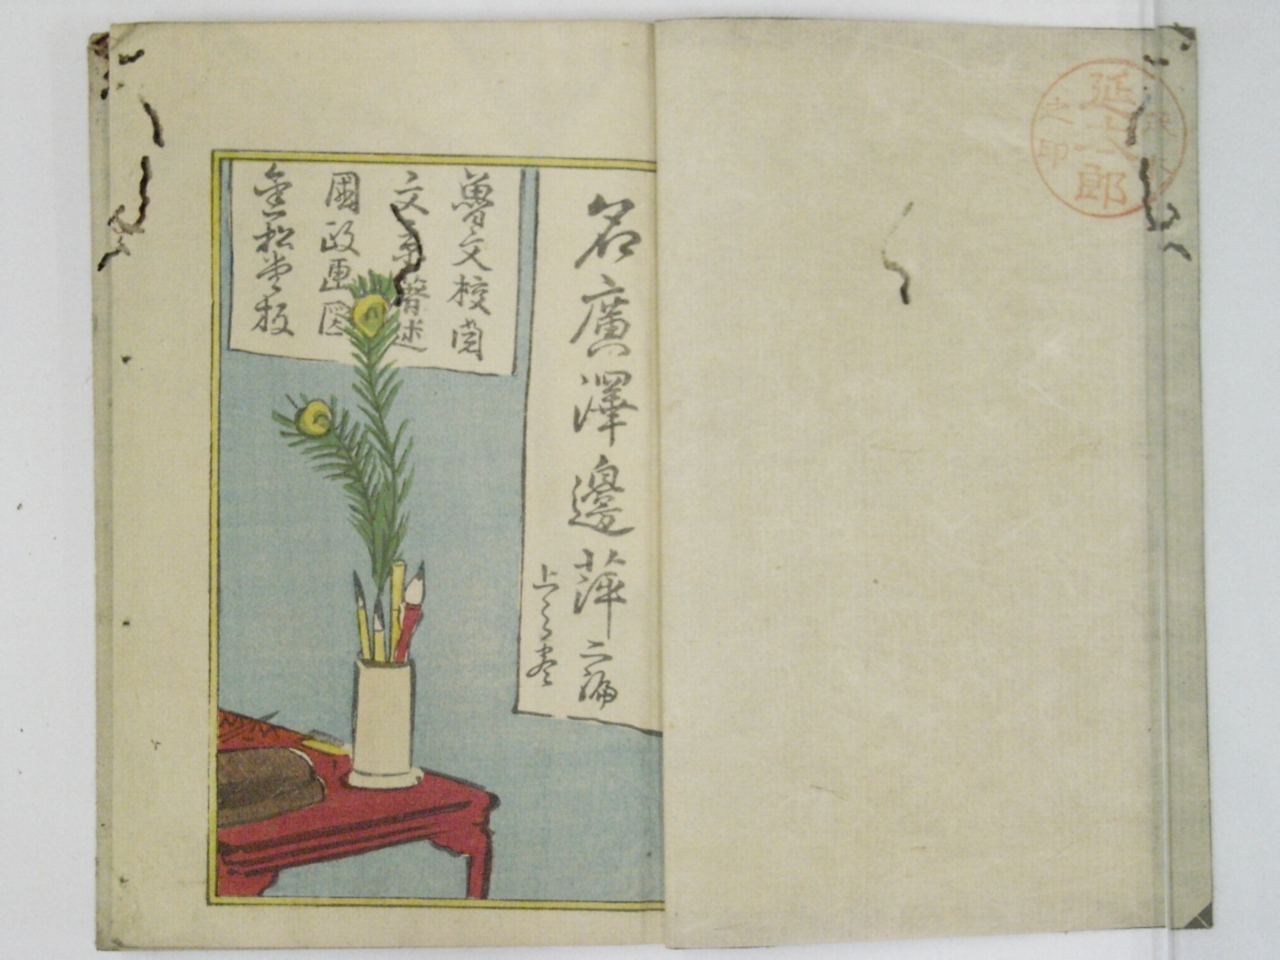 延太郎
之印
名廣澤邊萍二編
上之巻
魯文校閲
文京暫述
國政画図
金松堂板